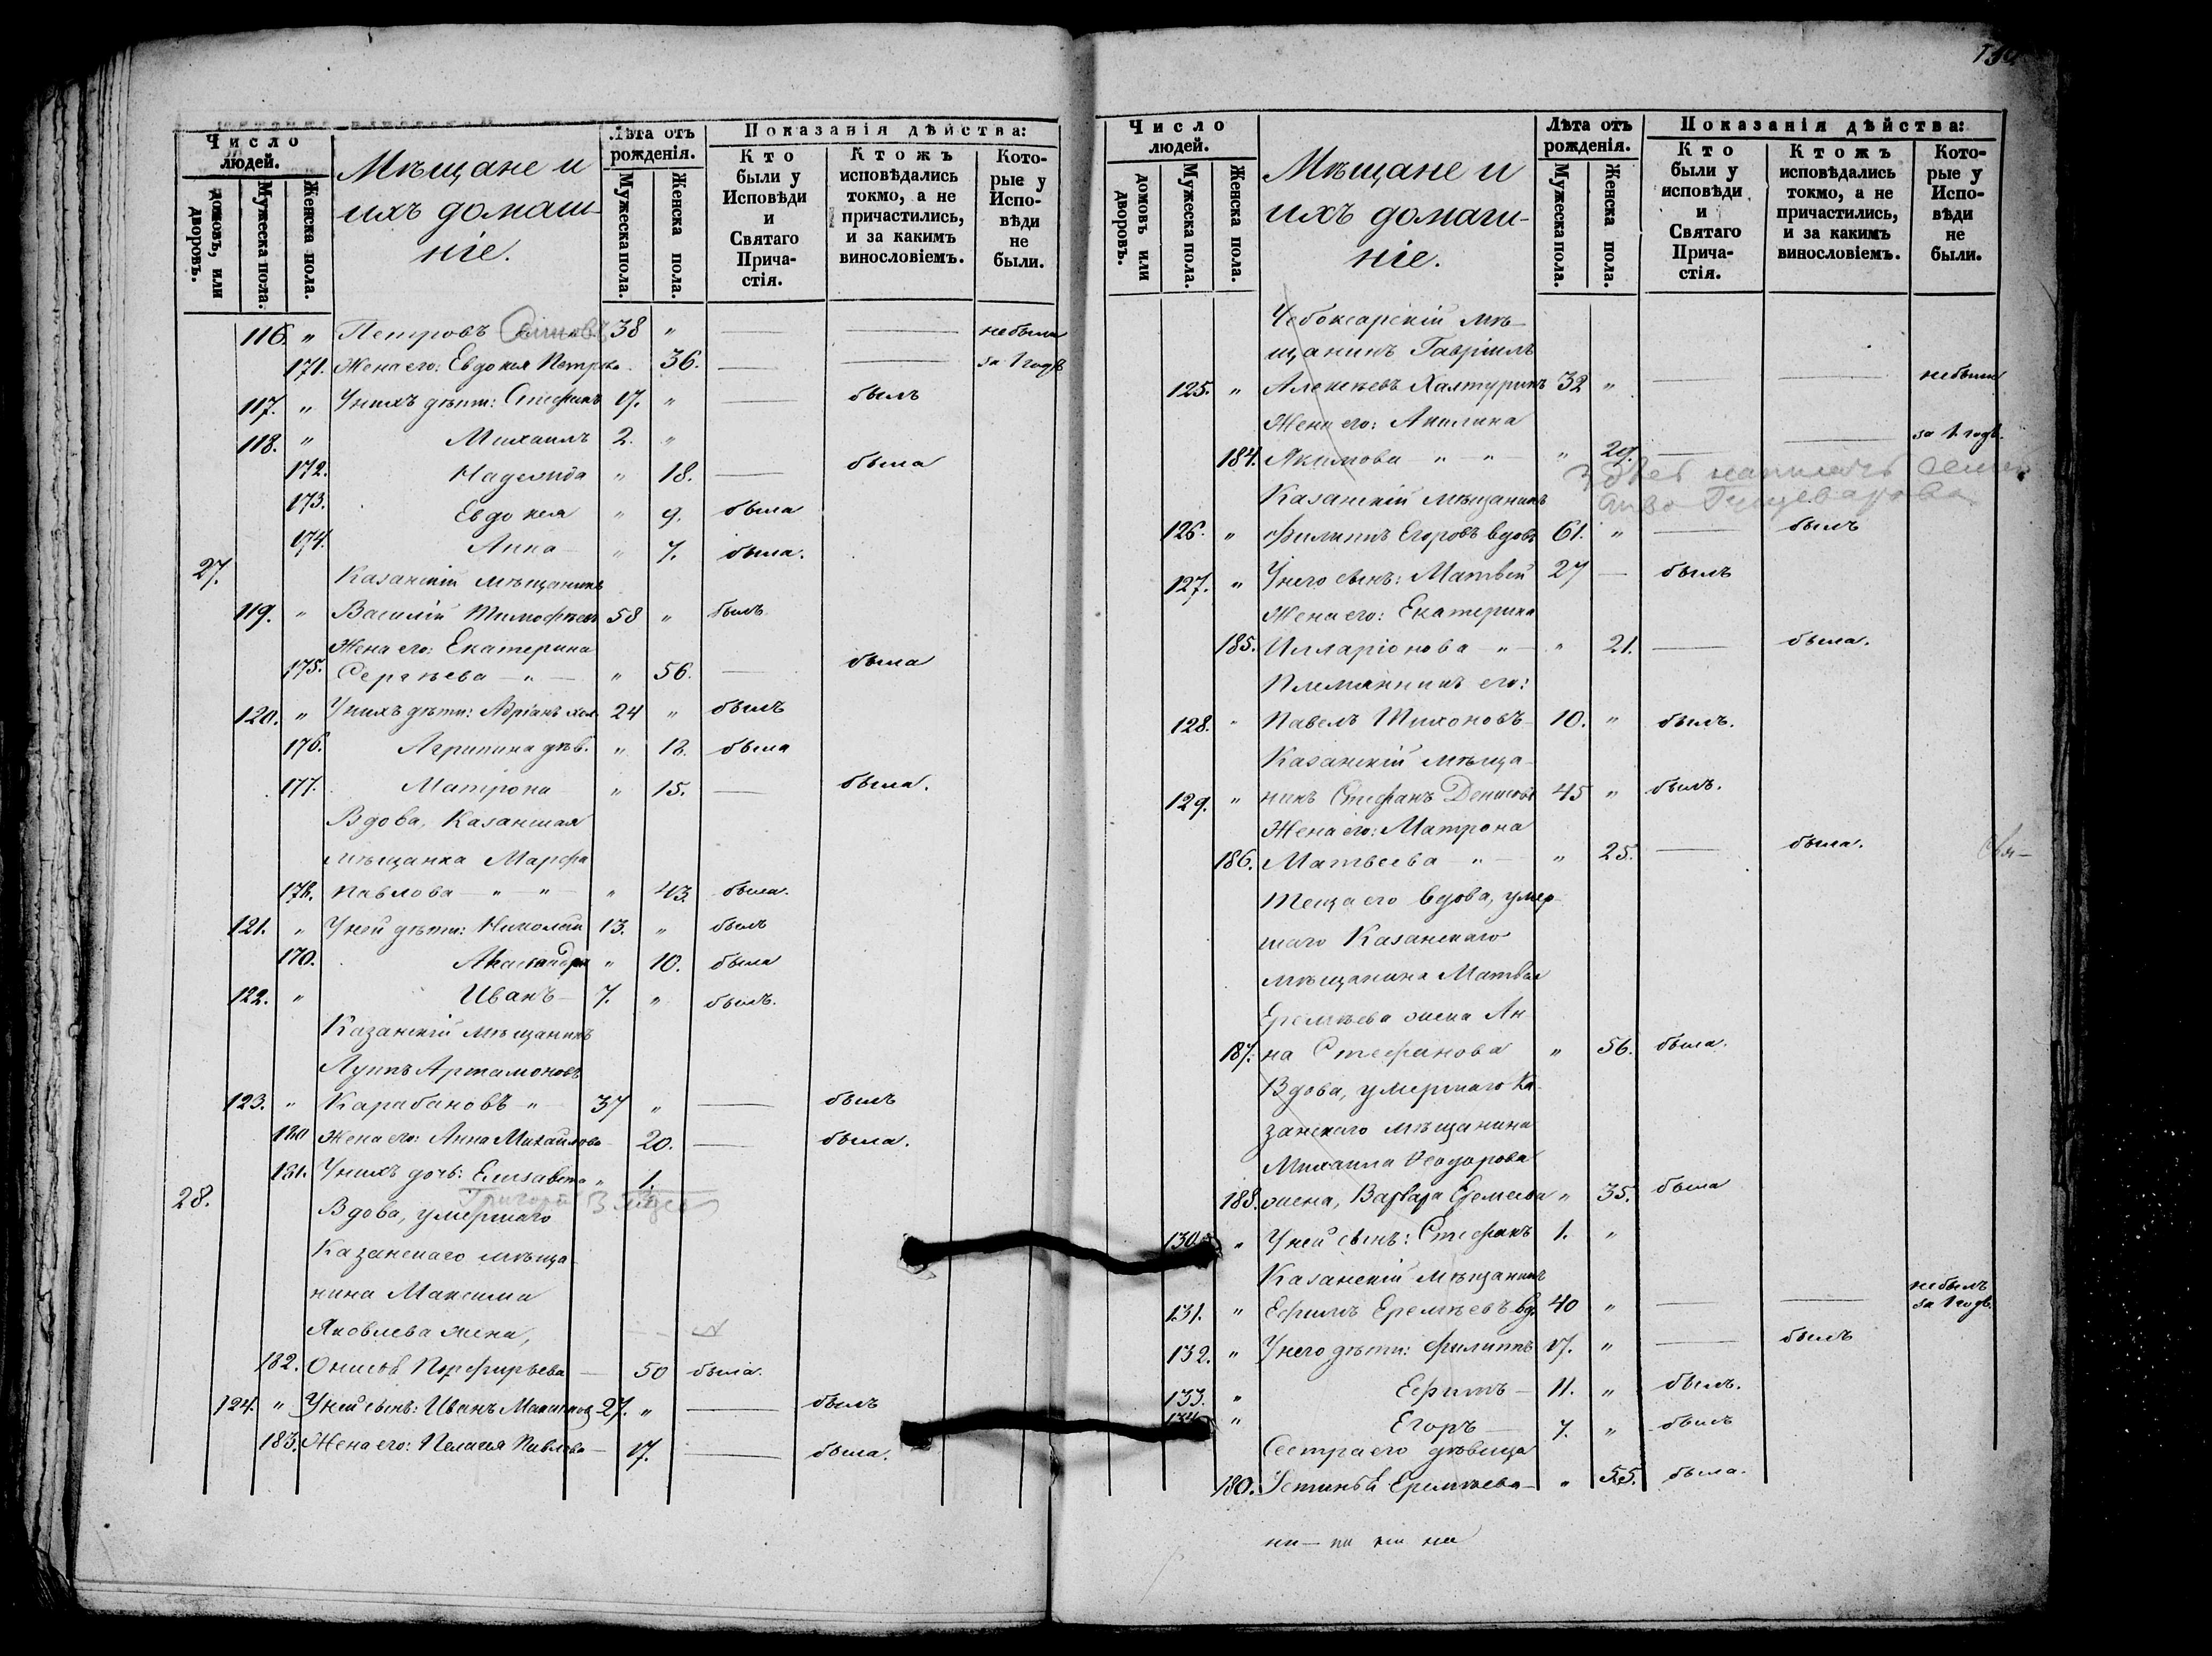 Число людей.
домовъ, или дворовъ.
Мужеска пола.
Женска пола.
Мѣщане и
ихъ домаш-
ніе.
Лѣта отъ рожденія.
Мужеска пола.
Женска пола.
Показанія дѣйства:
Кто были у Исповѣди и Святаго Прича-стія.
Ктожъ исповѣдались токмо, а не причастились, и за какимъ винословіемъ.
Кото-рые у Испо-вѣди не были.
116. " Петровъ 38 " — — небыли
171. Жена его: Евдокія Петрова 36. — — за 1 годъ
117. " У нихъ дѣти: Стефанъ 17. " — былъ
118. " Михаилъ 2. "
172. Надежда " 18. — была
173. Евдокія " 9. была
174. Анна " 7. была.
27. Казанскій мѣщанинъ
119. " Василій Тимофѣевъ 58 " былъ
Жена его: Екатерина
175. Сергѣева — " — " 56. — была
120. " У нихъ дѣти: Адріанъ хол. 24 " былъ
176. Агрипина дѣв. " 18. была
177. Матрона " 15. — была.
Вдова, Казанская
мѣщанка Марфа
178. Павлова — " — " — " 43. была.
121. " У ней дѣти: Николай 13. " былъ
170. " 10. была
122. " Иванъ — 7. " былъ.
Казанскій мѣщанинъ
Луппъ Артамоновъ
123. " Карабановъ " 37 " — былъ
180 Жена его: Анна Михайлова 20. — была.
181. У нихъ дочь: Елисавета " 1.
28. Вдова, умершаго
Казанскаго мѣща-
нина Максима
Яковлева жена,
182. Онисья Порфирьева — 50 была.
124. " У ней сынъ: Иванъ Максимовъ 27. " — былъ
183. Жена его: Пелагія Павлова — 17. — была.
Число людей.
домовъ или дворовъ.
Мужеска пола.
Женска пола.
Мѣщане и
ихъ домаш-
ніе.
Лѣта отъ рожденія.
Мужеска пола.
Женска пола.
Показанія дѣйства:
Кто были у исповѣди и Святаго Прича-стія.
Ктожъ исповѣдались токмо, а не причастились, и за какимъ винословіемъ.
Кото-рые у Испо-вѣди не были.
Чебоксарскій мѣ-
щанинъ Гавріилъ
125. " Алексѣевъ Халтуринъ 32 " — — небыли
Жена его: Акилина
184. Якимова " " — " 29. — — за 1 годъ.
Здѣсь написать
Казанскій мѣщанинъ
126. " Филиппъ Егоровъ вдовъ 61. " — былъ
127. " У него сынъ: Матвей 27 — былъ
Жена его: Екатерина
185. Илларіонова — " — " 21. — была.
Племянникъ его:
128. " Павелъ Тихоновъ 10. " былъ.
Казанскій мѣща-
129. " нинъ Стефанъ Денисовъ 45 " былъ.
Жена его: Матрона
186. Матвеева — " — " 25. — была.
Теща его вдова, умер-
шаго Казанскаго
мѣщанина Матвея
Еремѣева жена Ан-
187. на Стефанова " 56. была.
Вдова, умершаго Ка-
занскаго мѣщанина
Михаила Ѳеодорова
188. жена, Варвара Еремеева " 35. была
130. " У ней сынъ: Стефанъ 1. "
Казанскій мѣщанинъ
131. " Ефимъ Еремѣевъ вд. 40 " — — небылъ за 1 годъ.
132. " У него дѣти: Филиппъ 17. " — былъ
133. " Ефимъ — 11. " былъ.
134. " Егоръ — 7. " былъ
Сестра его дѣвица
180. Устинья Еремѣева — " 55. была.